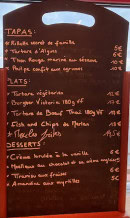 TAPAS:
* Rillette secret de famille
* Tartare d'Algues 5€
* Thon Rouge mariné au sésame 10€
* Poulpe confit aux agrumes 10€
PLATS:
* Tartare végétarien 12€
* Burger Victoria 180g VF
* Tartare de Boeuf Thaï 180g VF
* Fish and Chips de Merlan
* Moules frites
DESSERTS:
* Crème brulée à la vanille 6€
* Moelleux au chocolat et sa crème anglaise
* Tiramisu aux fraises 6€
* Amandine aux myrtilles